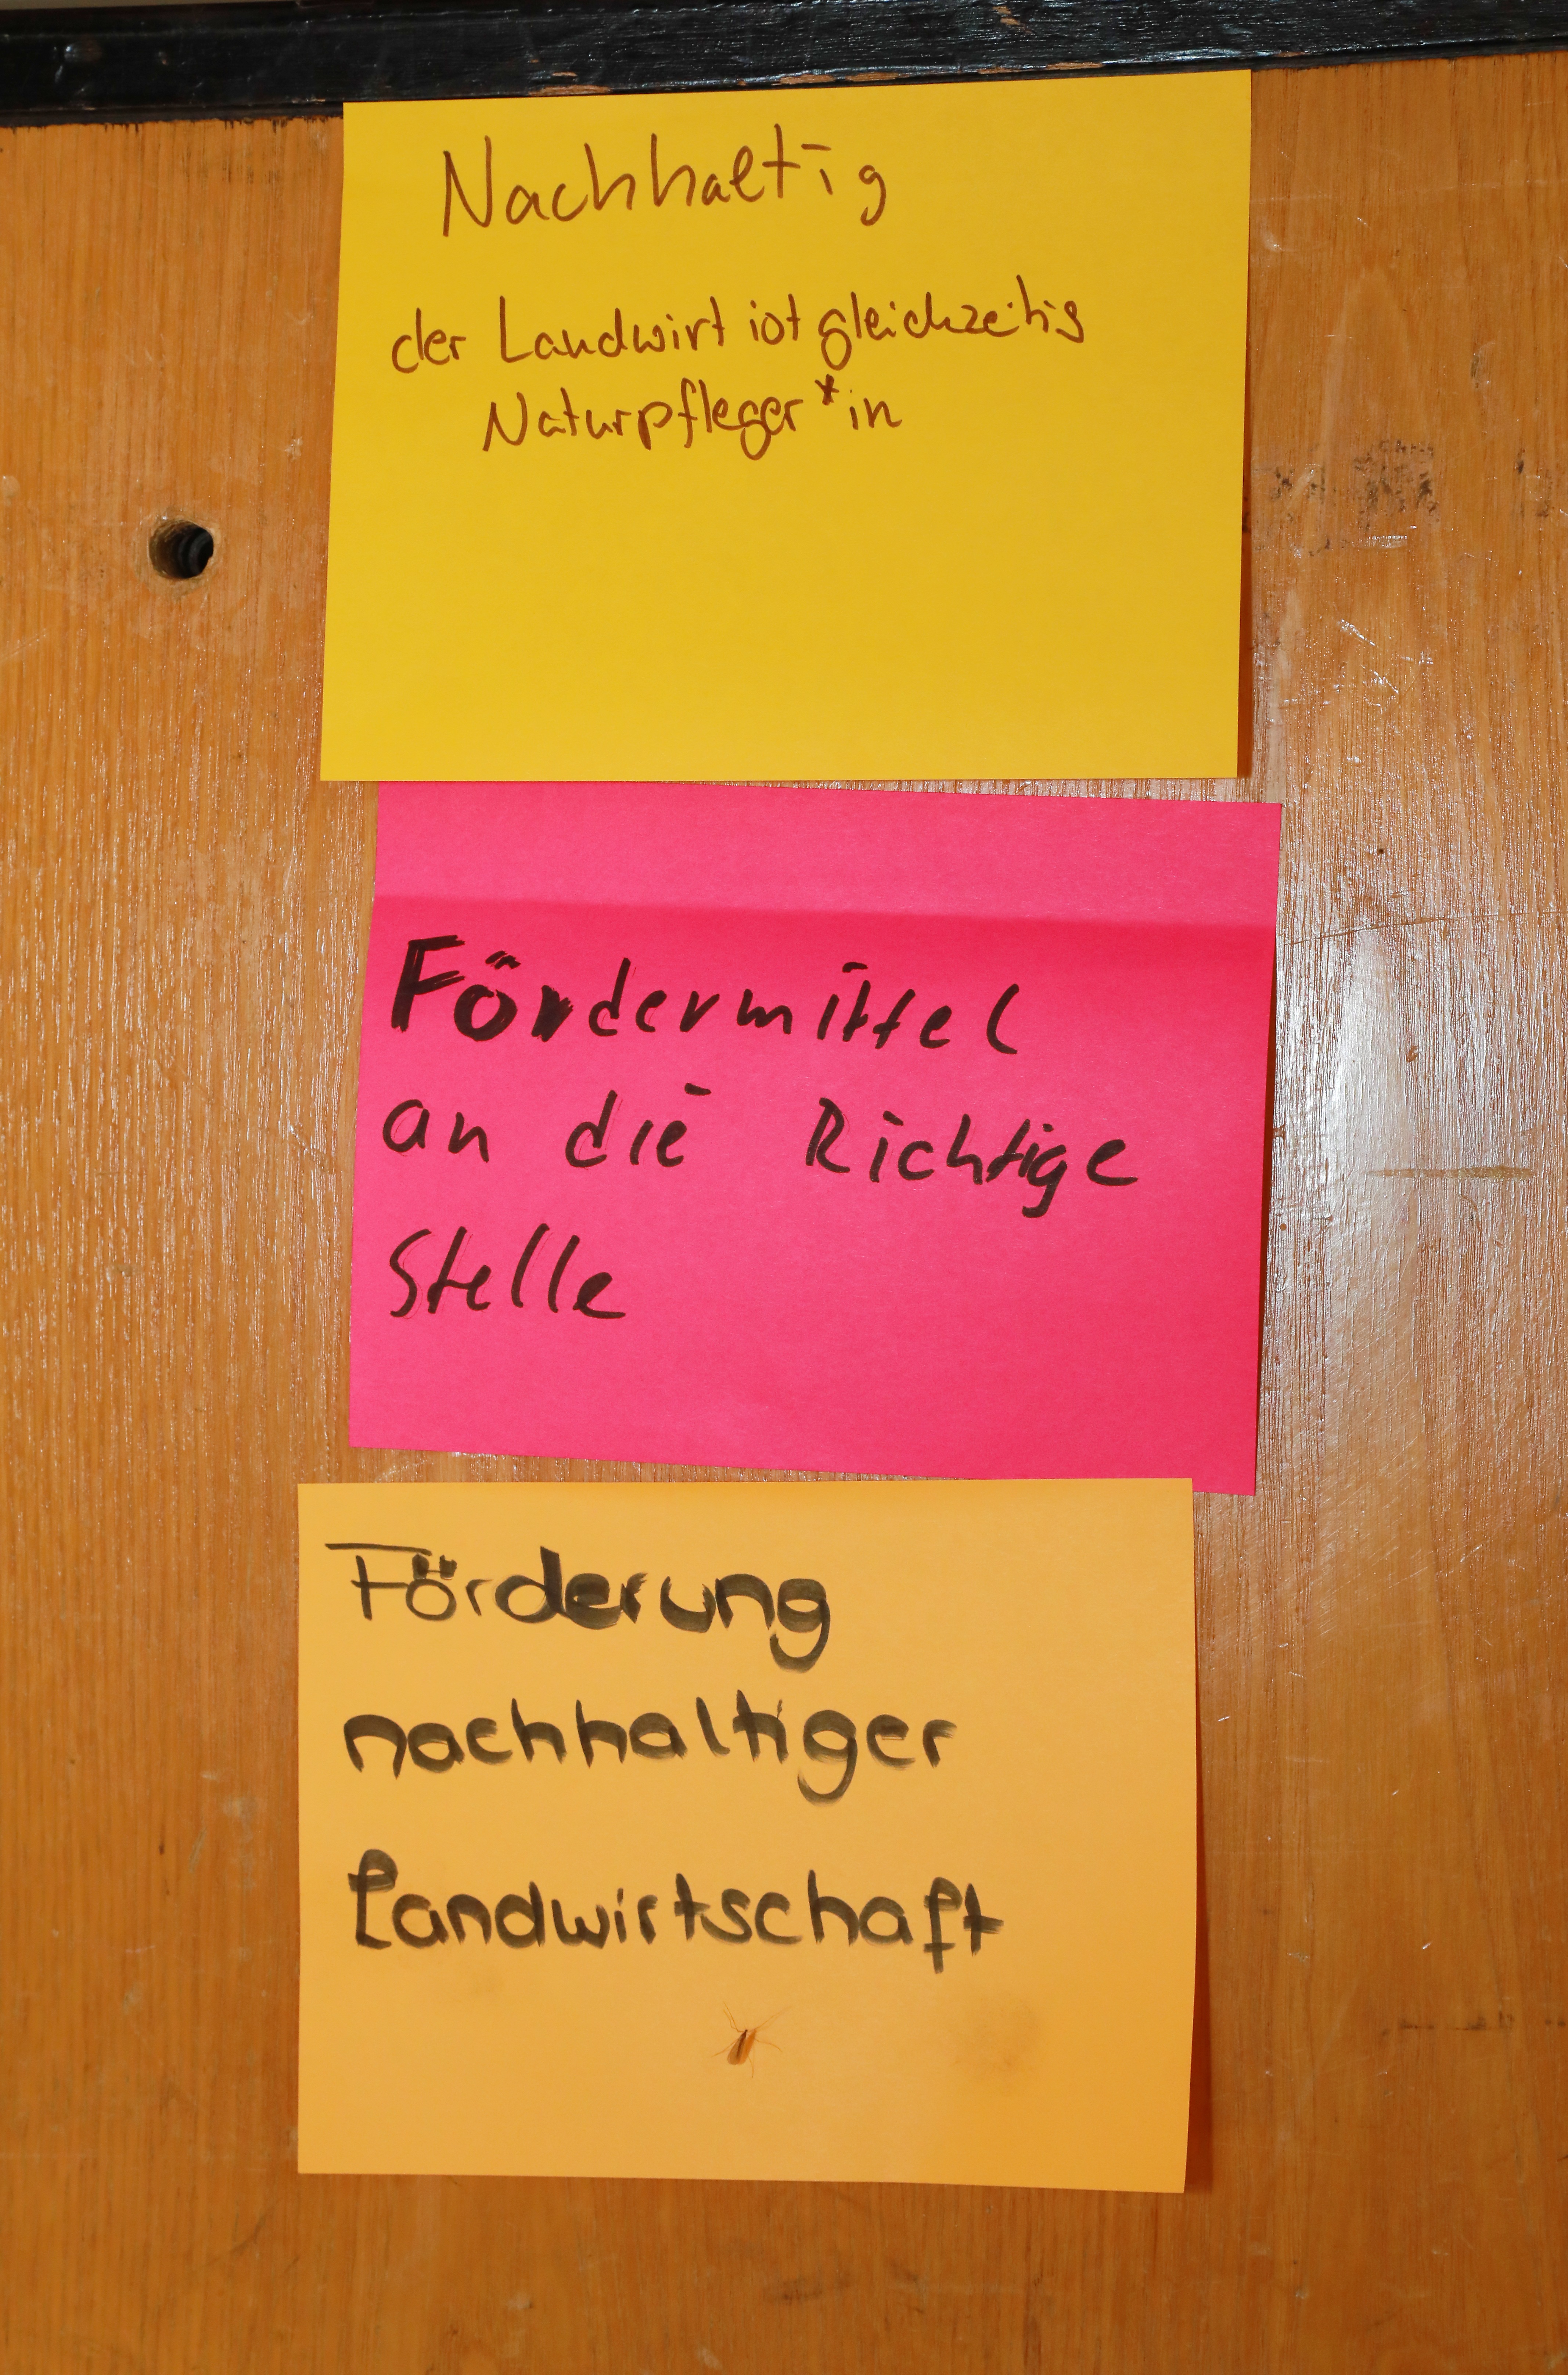 Nachhaltig
der Landwirt ist gleichzeitig
Naturpfleger*in
Fördermittel
an die Richtige
Stelle
Förderung
nachhaltiger
Landwirtschaft